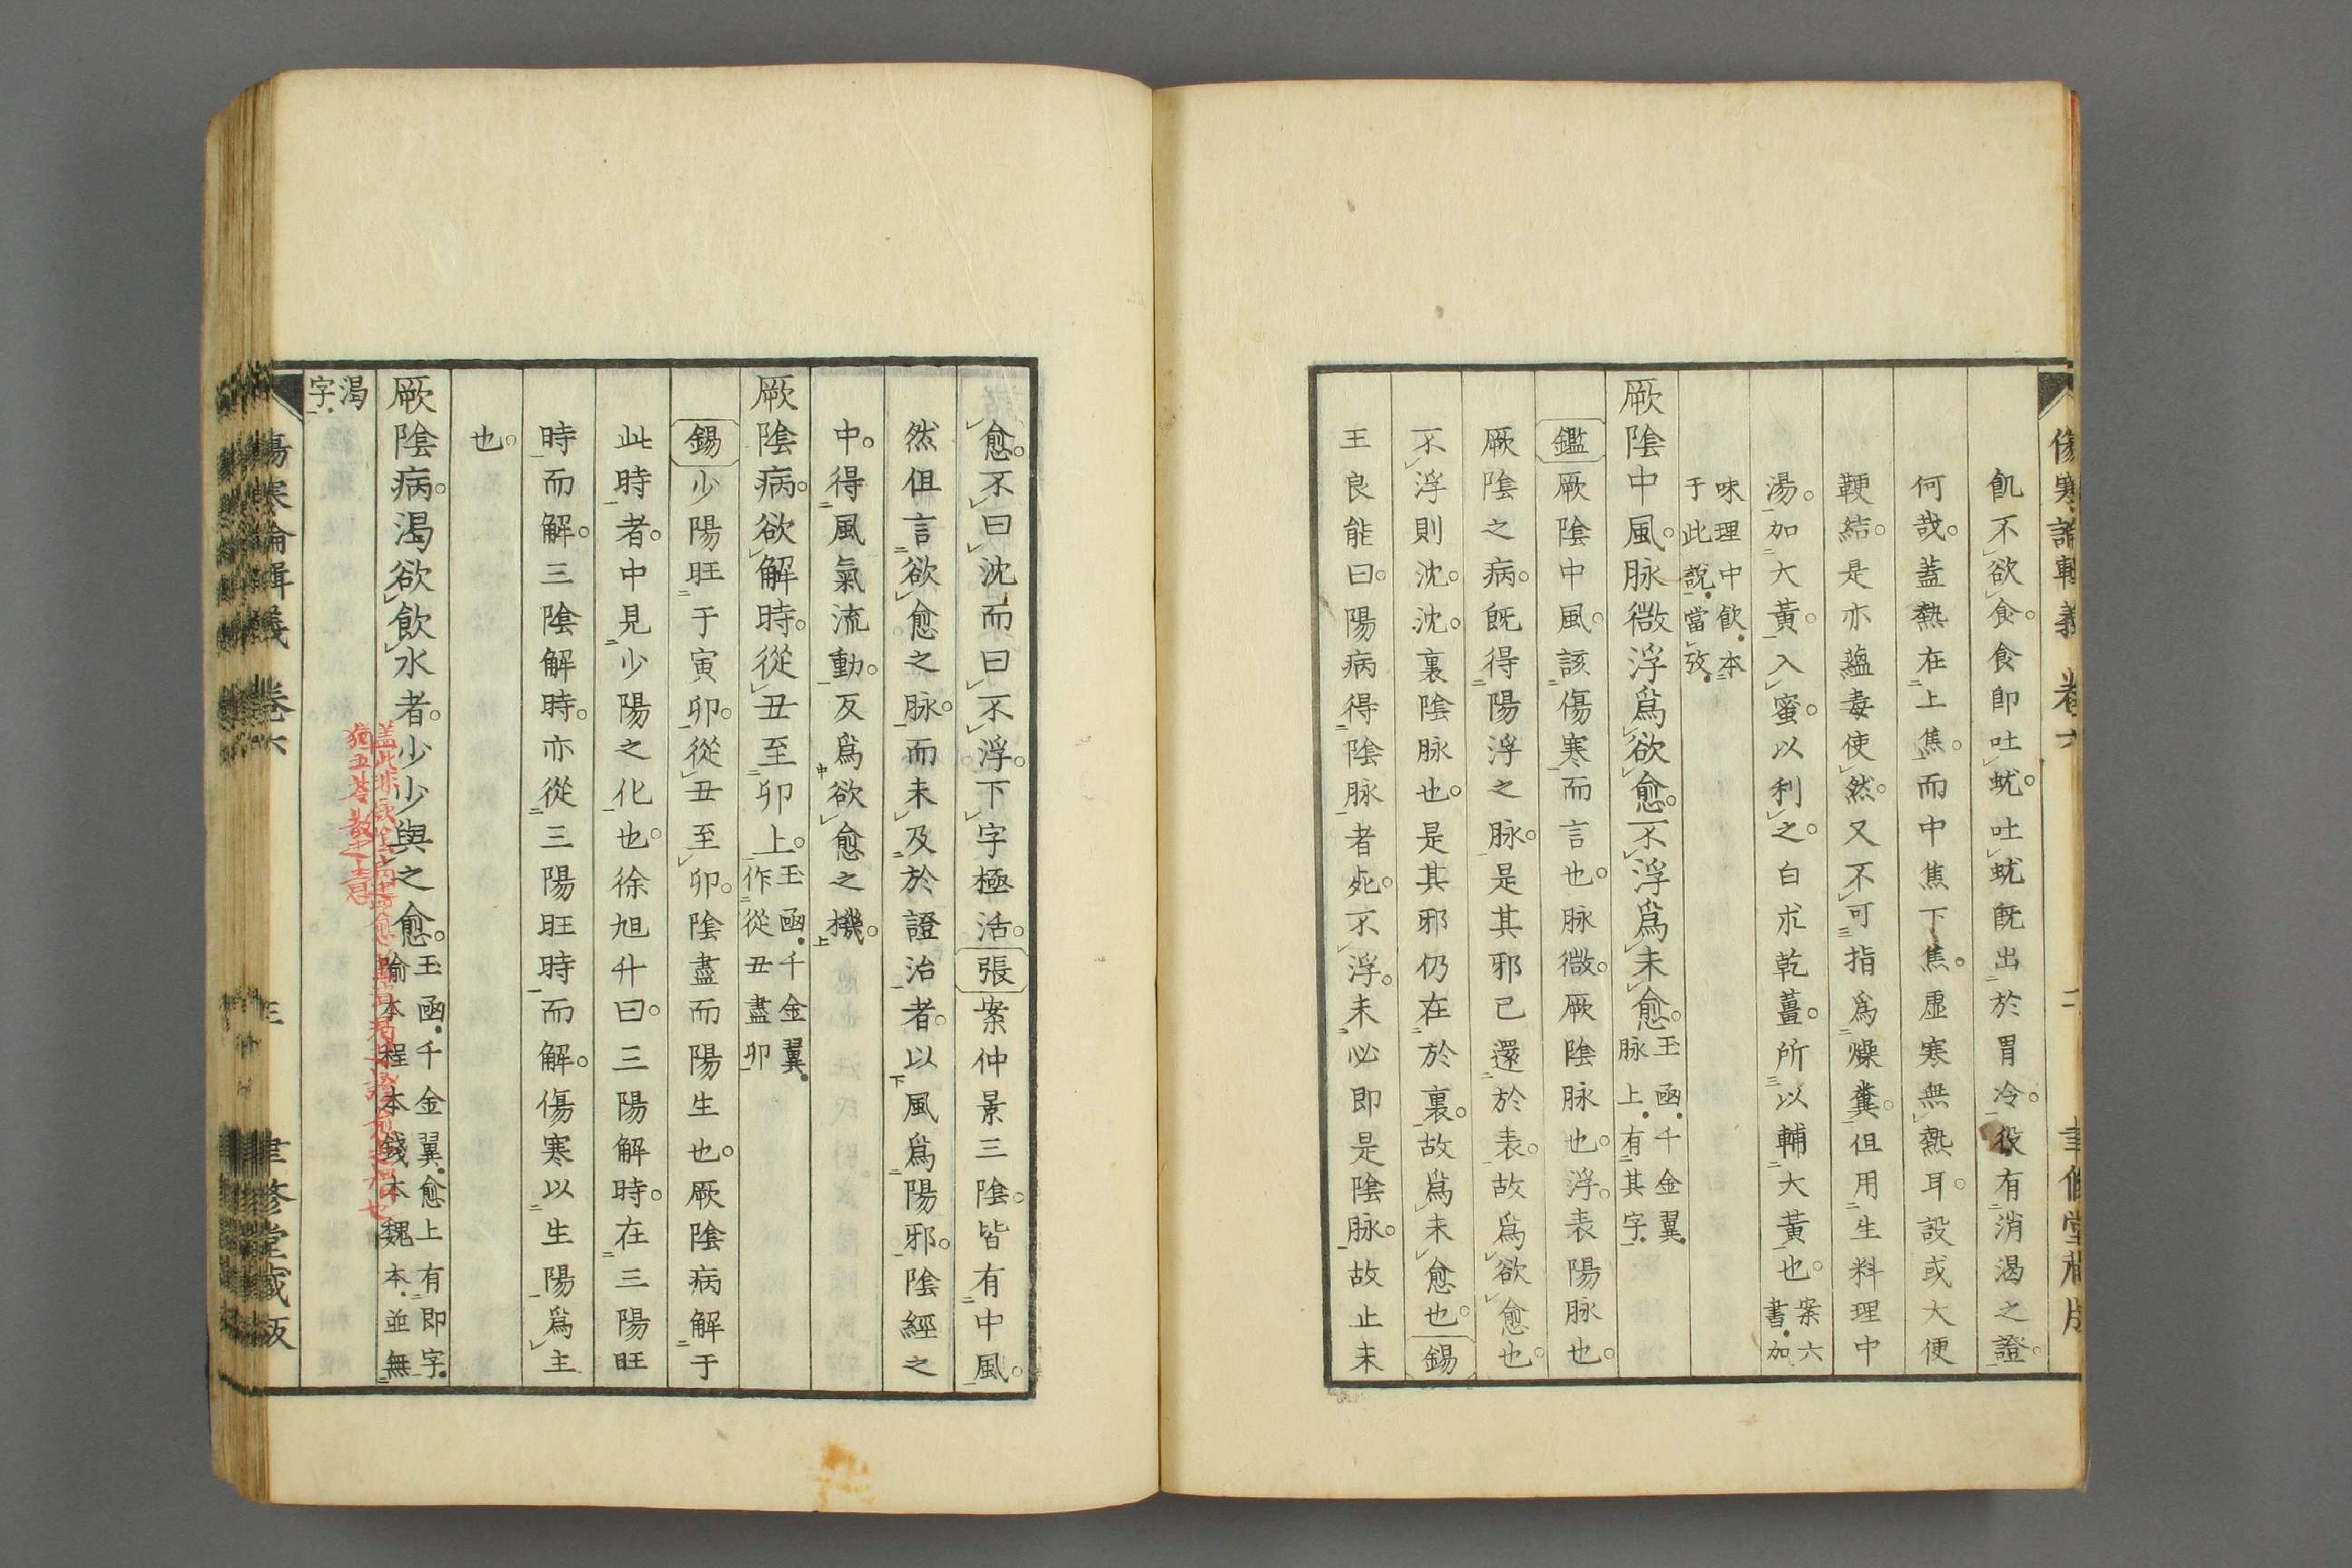 傷寒論輯義 卷六 二 聿修堂藏版
飢不欲食。食即吐蚘。吐蚘既出於胃冷。役有消渴之證。
何哉。蓋熱在上焦。而中焦下焦。虛寒無熱耳。設或大便
鞕結。是亦蘊毒使然。又不可指爲燥糞。但用生料理中
湯。加大黃。入蜜。以利之。白朮乾薑。所以輔大黃也。案六書。加
味理中飮。本于此說。當攷。
厥陰中風。脉微浮爲欲愈。不浮爲未愈。玉函。千金翼。脉上。有其字。
鑑厥陰中風。該傷寒而言也。脉微。厥陰脉也。浮。表陽脉也。
厥陰之病。既得陽浮之脉。是其邪已還於表。故爲欲愈也。
不浮則沈。沈。裏陰脉也。是其邪仍在於裏。故爲未愈也。錫
王良能曰。陽病得陰脉者死。不浮。未必即是陰脉。故止未
愈。不曰沈而曰不浮。下字極活。張案仲景三陰。皆有中風。
然但言欲愈之脉。而未及於證治者。以風爲陽邪。陰經之
中。得風氣流動。反爲欲愈之機。
厥陰病。欲解時。從丑至卯上。玉函。千金翼。作從丑盡卯
錫少陽旺于寅卯。從丑至卯。陰盡而陽生也。厥陰病解于
此時者。中見少陽之化也。徐旭升曰。三陽解時。在三陽旺
時而解。三陰解時。亦從三陽旺時而解。傷寒以生陽爲主
也。
厥陰病。渴欲飮水者。少少與之愈。玉函。千金翼。愈上有即字。喻本程本錢本魏本。並無
蓋此非厥陰病盡愈
猶五苓散之意
渴字。
傷寒論輯義 卷六 三 聿修堂藏版